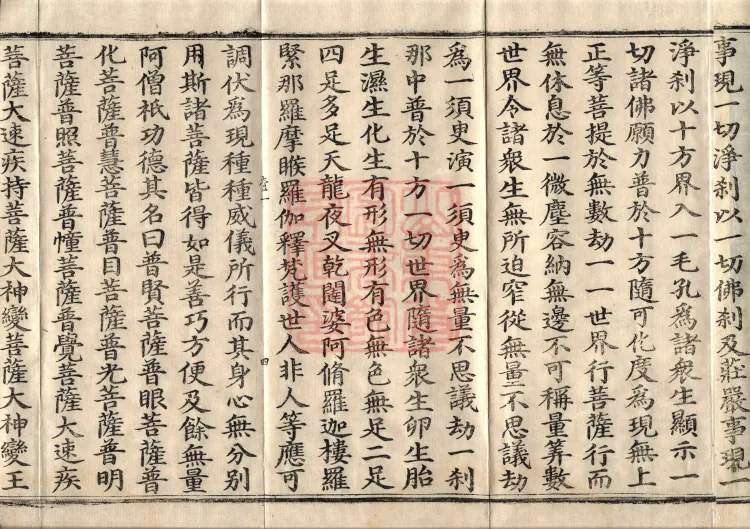 事現一切淨刹以一切佛刹及莊嚴事現一
淨刹以十方界入一毛孔爲諸衆生顯示一
切諸佛願力普於十方隨可化度爲現無上
正等菩提於無數劫一一世界行菩薩行而
無休息於一微塵容納無邊不可稱量筭數
世界令諸衆生無所迫窄從無量不思議劫
爲一須臾演一須臾爲無量不思議劫一刹
那中普於十方一切世界隨諸衆生卵生胎
生濕生化生有形無形有色無色無足二足
四足多足天龍夜叉乾闥婆阿脩羅迦樓羅
緊那羅摩睺羅伽釋梵護世人非人等應可
四
調伏爲現種種威儀所行而其身心無分別
用斯諸菩薩皆得如是善巧方便及餘無量
阿僧祇功德其名曰普賢菩薩普眼菩薩普
化菩薩普慧菩薩普目菩薩普光菩薩普明
菩薩普照菩薩普幢菩薩普覺菩薩大速疾
菩薩大速疾持菩薩大神變菩薩大神變王